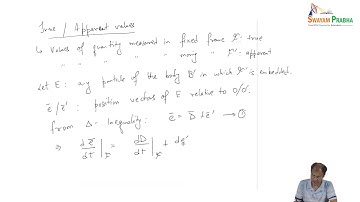 SWAYAM PRABHA
True / Apparent values
↳ Values of quantity measured in fixed frame F : true
" " " " moving " F' : apparent
Let E : any particle of the body B' in which F' is embedded.
r̄ / r̄' : position vectors of E relative to O/O'.
from Δ- inequality: r̄ = D̄ + r̄' → ①
⇒ dr̄/dt |F = dD̄/dt |F + dr̄'